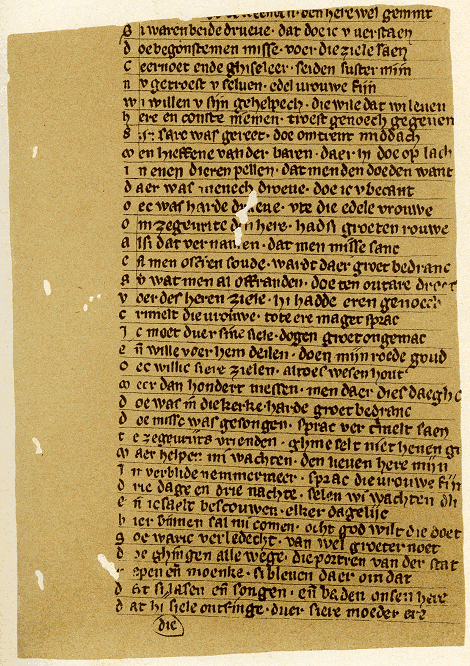 den here wel gemint
S i waren beide drueve · dat doe ic v verstaen
d oe begonstemen misse · voer die ziele saen
C eernoet ende ghiseleer · seiden suster mijn
n v getroest v seluen · edel vrouwe fijn
w i willen v sijn gehelpech · die wile dat wi leuen
h ere en conste niemen · troest genoech gegeuen
S sarc was gereet · doe omtrent middach
m en hieffene van der baren · daer hi doe op lach
I n enen dieren pellen · dat men den doeden want
d aer was menech droeue · doe ic v becant
o ec was harde · vte die edele vrouwe
o m zegeurite here · hadsi groeten rouwe
a lsi dat vernamen · dat men misse sanc
e ñ men offren soude · wardt daer groet bedranc
a l wat men al offranden · doe ten outare
v oer des heren ziele · hi hadde eren genoech
c rimelt die vrouwe · tote ere maget sprac
I c moet duer sine siele · dogen groet ongemac
e ñ wille voer hem deilen · doen mijn roede goud
o ec willic siere zielen · altoes wesen hout
m eer dan hondert messen · men daer dies daeghs
d oe was in die kerke · harde groet bedranc
d oe misse was gesongen · sprac ver crimelt saen
t e zegeurijts vrienden · ghine selt niet henen
m aer helpen mi wachten · den lieuen here mijn
I n verblide nemmermeer · sprac die vrouwe fijn
d rie dage en drie nachte · selen wi wachten
e ñ icsaelt bescouwen · elker dagelijc
h ier binnen sal mi comen · ocht god wilt die doet
g oe waric verledecht · van wel groeter noet
d ghingen alle wege · die portren van der stat
epen eñ moenke · si bleuen daer om dat
d at si lasen eñ songen · eñ baden onsen here
d at hi siele ontfinge · duer siere moeder ere
die